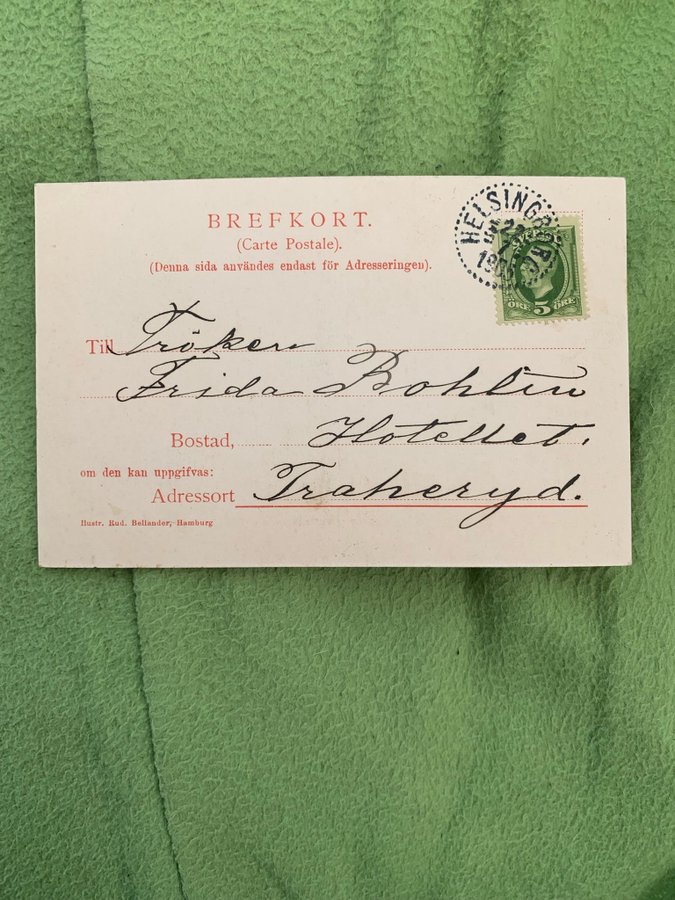 BREFKORT.
(Carte Postale).
(Denna sida användes endast för Adresseringen).
HELSINGBORG
5
ÖRE 5 ÖRE
Till Fröken
Frida Bohlin
Bostad, Hotellet.
om den kan uppgifvas:
Adressort Traheryd.
Illustr. Rud. Bellander, Hamburg